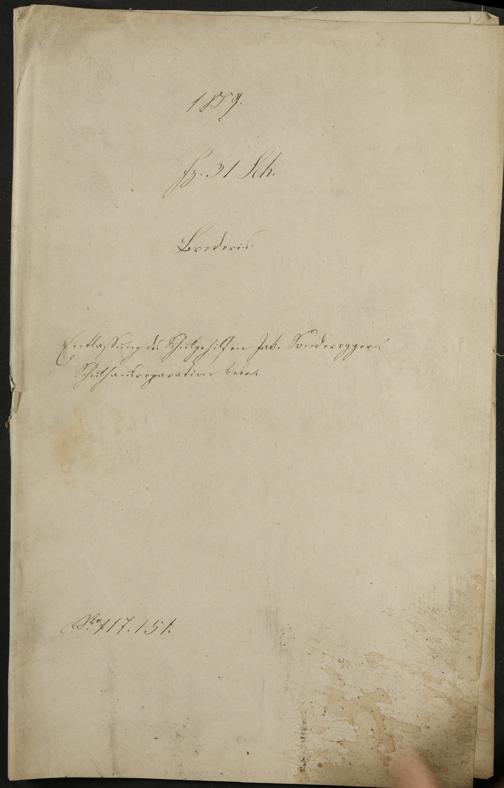 1859.
Fz. 31 Sch.
Brederis
Entlassung des Schulgehilfen Jak. Sonderegger.
Schulhausreparation betr.
No. 117. 151.